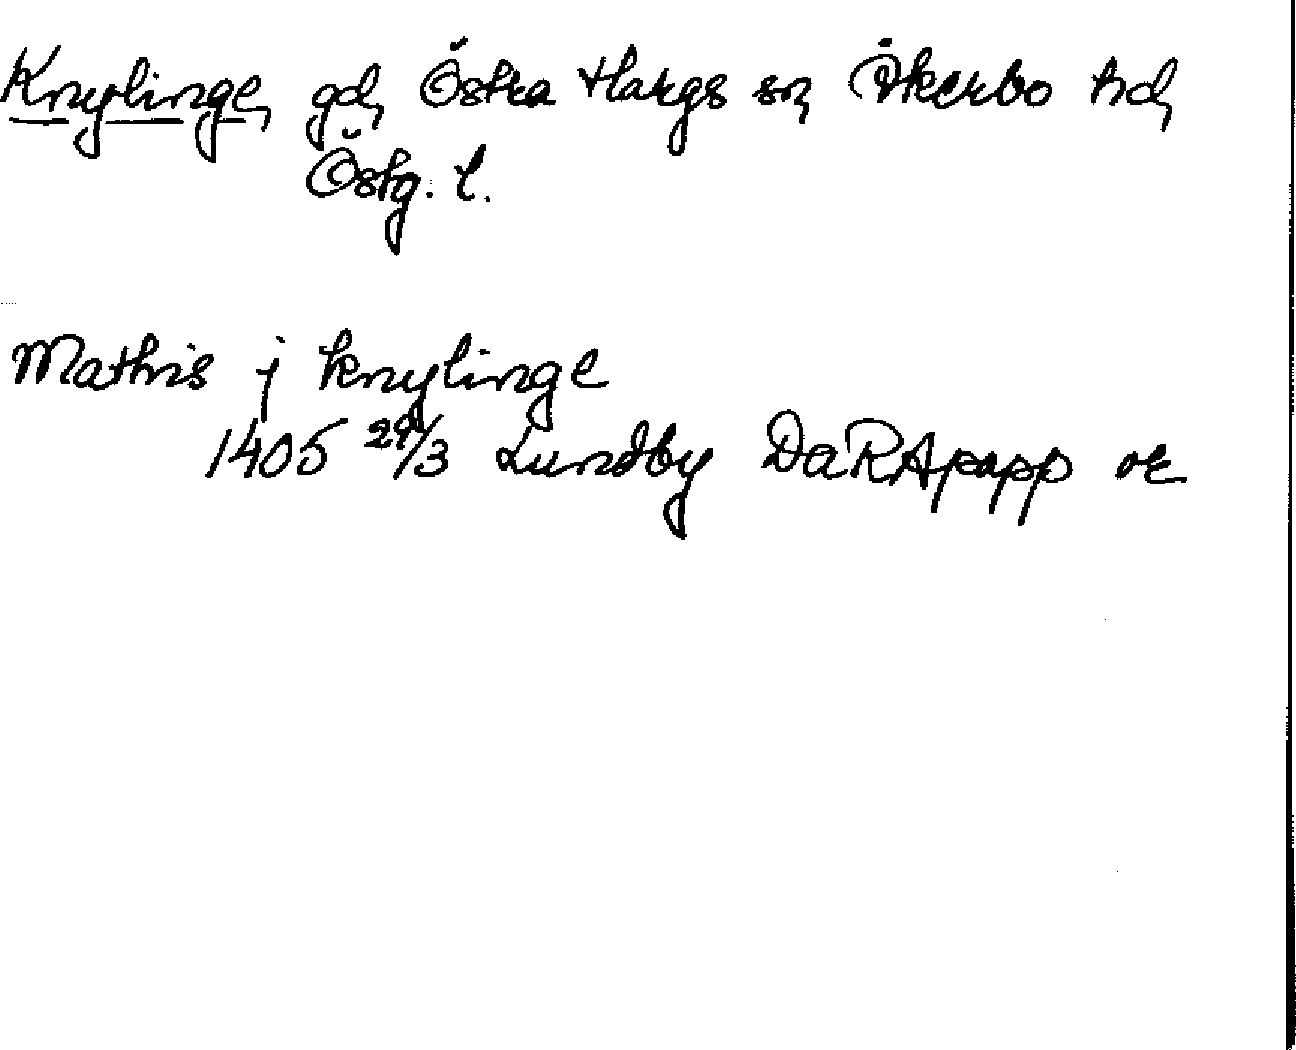 Knylinge, gd, Östra Hargs sn, Åkerbo hd,
Östg. l.
Mathis j knylinge
1405 29/3 Lundby DaRApapp or